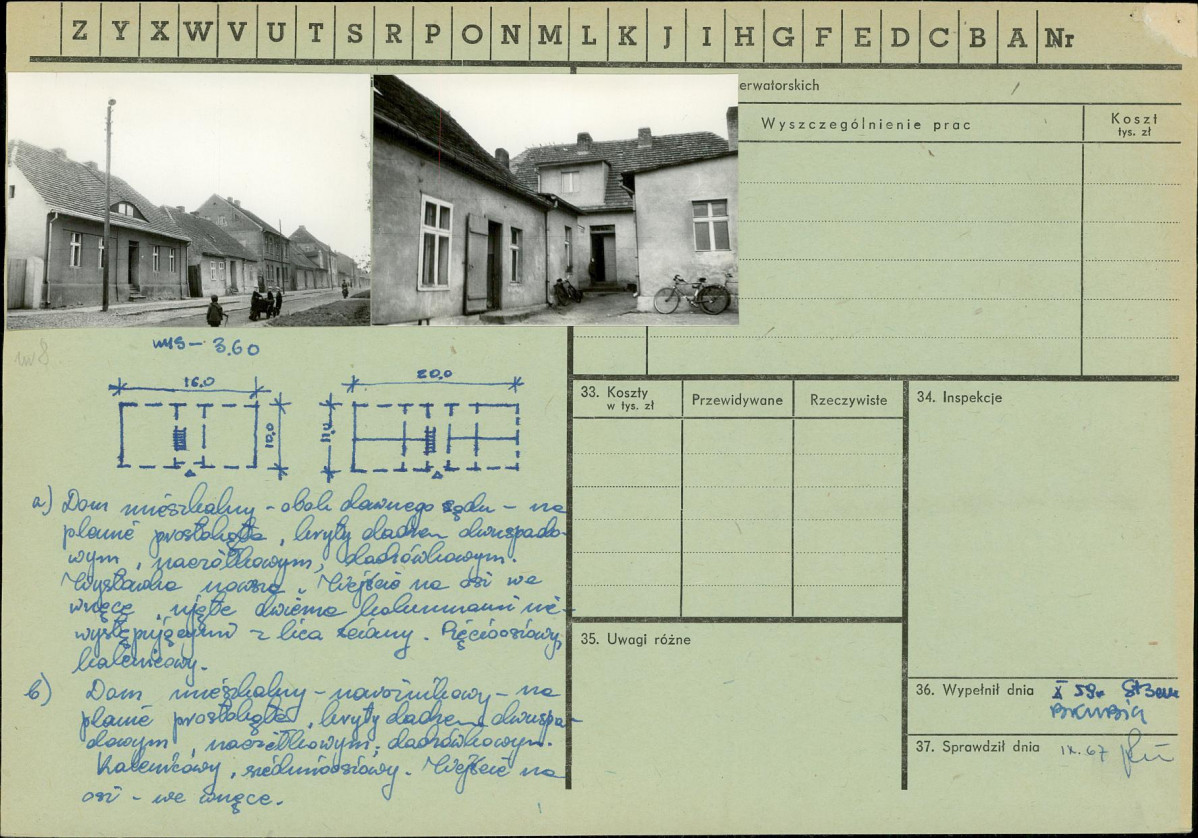 Z Y X W V U T S R P O N M L K J I H G F E D C B A Nr
erwatorskich
Wyszczególnienie prac
Koszt
tys. zł
wys – 3.60
16.0
20.0
10.0
11.0
a) Dom mieszkalny – obok dawnego sądu – na
planie prostokąta, kryty dachem dwuspado-
wym, naczółkowym, dachówkowym.
Wystawka nowsza. Wejście na osi we
wnęce, ujęte dwiema kolumnami nie
występującymi z lica ściany. Pięcioosiowy,
kalenicowy.
b) Dom mieszkalny – narożnikowy – na
planie prostokąta, kryty dachem dwuspa-
dowym, naczółkowym, dachówkowym.
Kalenicowy, siedmioosiowy. Wejście na
osi – we wnęce.
33. Koszty
w tys. zł
Przewidywane
Rzeczywiste
34. Inspekcje
35. Uwagi różne
36. Wypełnił dnia X 59r
37. Sprawdził dnia IX. 67